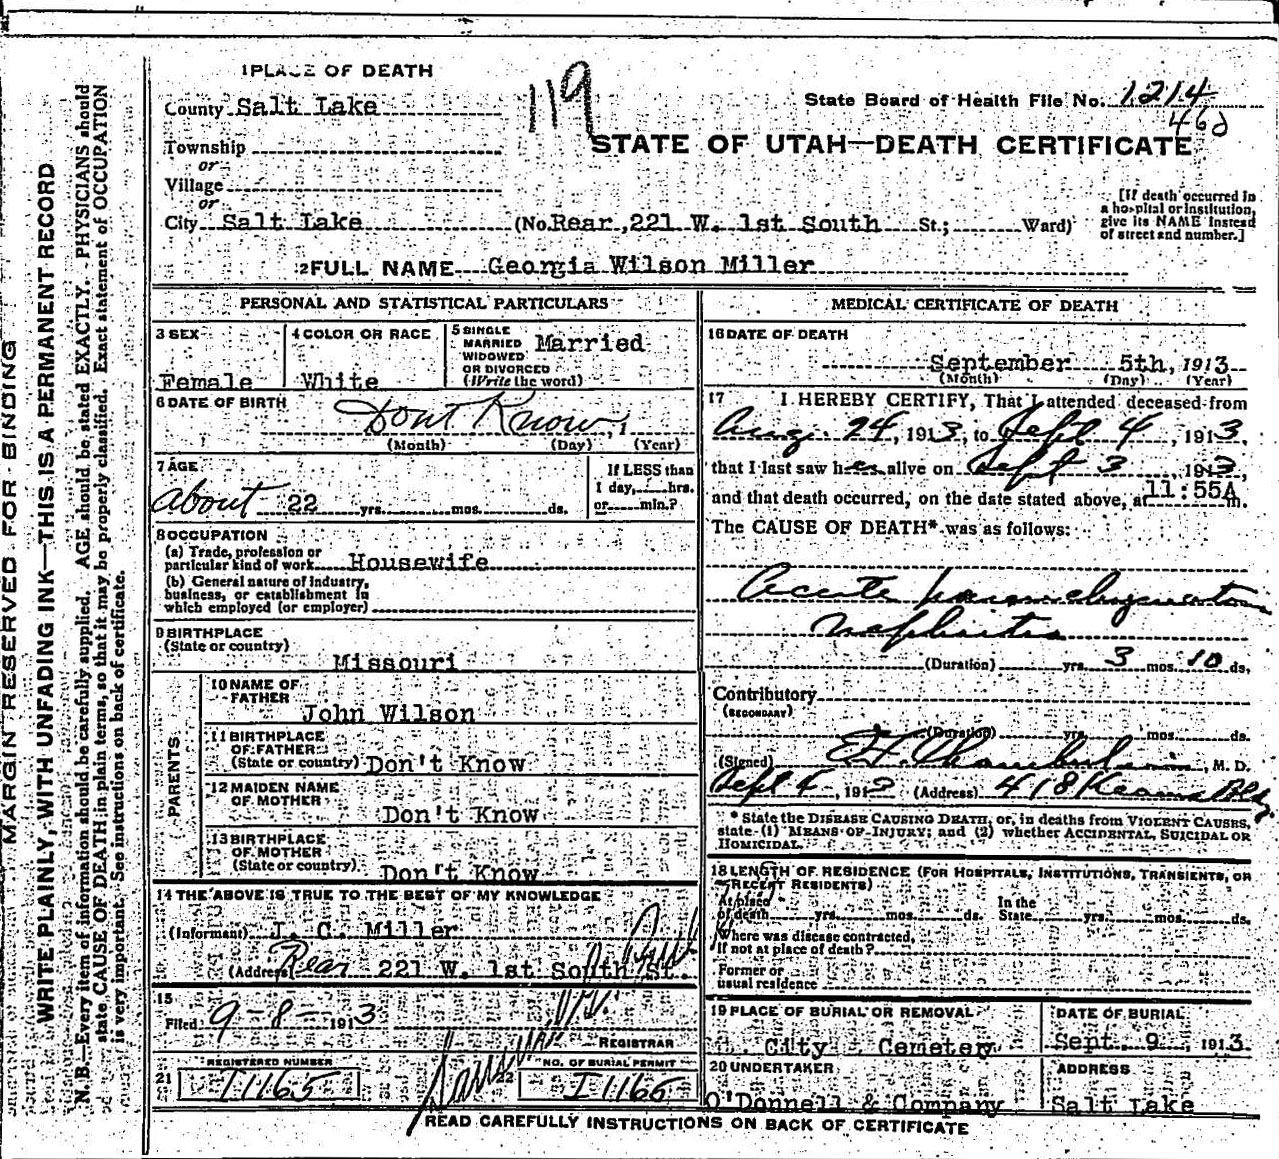 MARGIN RESERVED FOR BINDING
WRITE PLAINLY, WITH UNFADING INK—THIS IS A PERMANENT RECORD
N. B.—Every item of information should be carefully supplied. AGE should be stated EXACTLY. PHYSICIANS should
state CAUSE OF DEATH in plain terms, so that it may be properly classified. Exact statement of OCCUPATION
is very important. See instructions on back of certificate.
1 PLACE OF DEATH
County Salt Lake
Township
or
Village
or
City Salt Lake (No. Rear, 221 W. 1st South St.; Ward)
119
State Board of Health File No. 1214
462
STATE OF UTAH—DEATH CERTIFICATE
[If death occurred in
a hospital or institution,
give its NAME instead
of street and number.]
2 FULL NAME Georgia Wilson Miller
PERSONAL AND STATISTICAL PARTICULARS
3 SEX
Female
4 COLOR OR RACE
White
5 SINGLE
MARRIED
WIDOWED
OR DIVORCED
(Write the word)
Married
6 DATE OF BIRTH
Dont Know, 1
(Month) (Day) (Year)
7 AGE
about 22 yrs. mos. ds.
If LESS than
1 day, hrs.
or min.?
8 OCCUPATION
(a) Trade, profession or
particular kind of work Housewife
(b) General nature of industry,
business, or establishment in
which employed (or employer)
9 BIRTHPLACE
(State or country)
Missouri
PARENTS
10 NAME OF
FATHER
John Wilson
11 BIRTHPLACE
OF FATHER
(State or country) Don't Know
12 MAIDEN NAME
OF MOTHER
Don't Know
13 BIRTHPLACE
OF MOTHER
(State or country)
Don't Know
14 THE ABOVE IS TRUE TO THE BEST OF MY KNOWLEDGE
(Informant) J. C. Miller
(Address) Rear 221 W. 1st South St.
15
Filed 9-8-1913
REGISTRAR
REGISTERED NUMBER
21 I1165
NO. OF BURIAL PERMIT
22 I1165
MEDICAL CERTIFICATE OF DEATH
16 DATE OF DEATH
September 5th, 1913
(Month) (Day) (Year)
17 I HEREBY CERTIFY, That I attended deceased from
Aug. 24, 1913, to Sept 4, 1913,
that I last saw her alive on Sept 3, 1913,
and that death occurred, on the date stated above, at 11:55A m.
The CAUSE OF DEATH* was as follows:
Acute parenchymatous
Nephritis
(Duration) yrs. 3 mos. 10 ds.
Contributory
(SECONDARY)
(Duration) yrs. mos. ds.
(Signed) , M. D.
Sept 4, 1913 (Address) 418 Kearns Bldg
* State the DISEASE CAUSING DEATH, or, in deaths from VIOLENT CAUSES,
state (1) MEANS OF INJURY; and (2) whether ACCIDENTAL, SUICIDAL OR
HOMICIDAL.
18 LENGTH OF RESIDENCE (FOR HOSPITALS, INSTITUTIONS, TRANSIENTS, OR
RECENT RESIDENTS)
At place
of death yrs. mos. ds. In the
State yrs. mos. ds.
Where was disease contracted,
if not at place of death?
Former or
usual residence
19 PLACE OF BURIAL OR REMOVAL
City Cemetery
DATE OF BURIAL
Sept. 9, 1913.
20 UNDERTAKER
O'Donnell & Company
ADDRESS
Salt Lake
READ CAREFULLY INSTRUCTIONS ON BACK OF CERTIFICATE